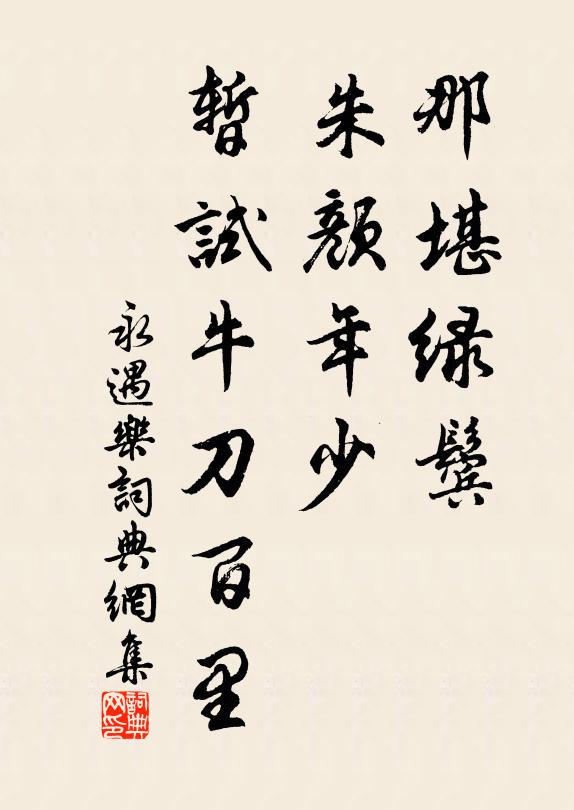 那堪綠鬢
朱顏年少
暫試牛刀百里
永遇樂詞典網集
詞典網印